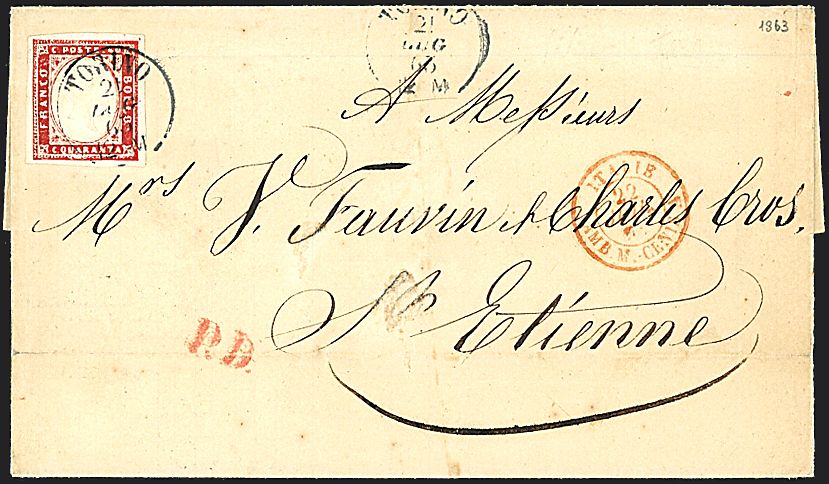 1863
C. POSTE
FRANCO
BOLLO
C. QUARANTA
TORINO
TORINO
21
LUG
63
M
A Messieurs
Mrs V. Fauvin & Charles Cros,
St Etienne
ITALIE
22
AMB. M.-CENIS
P.D.